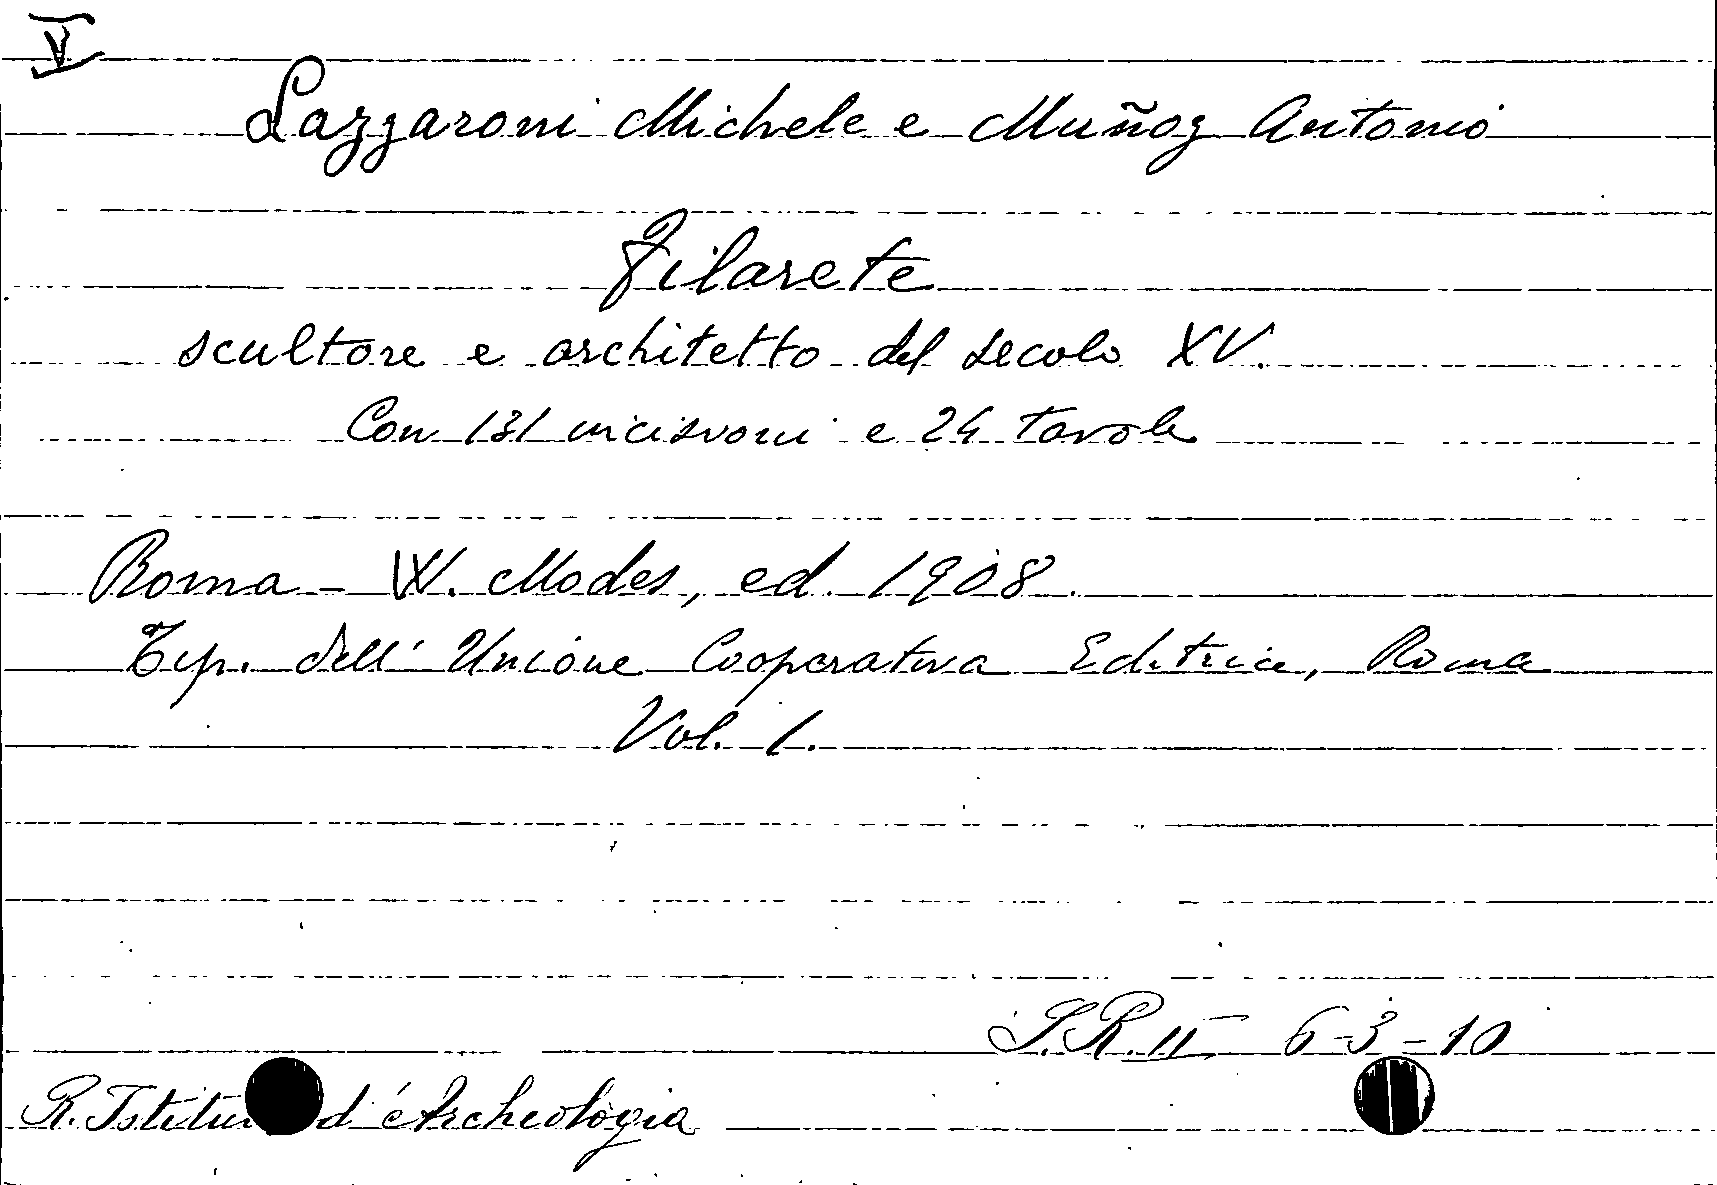 V
Lazzaroni Michele e Muñoz Antonio
Filarete
scultore e architetto del secolo XV.
Con 131 incisioni e 24 tavole
Roma - W. Modes, ed. 1908.
Tip. dell' Unione Cooperativa Editrice, Roma
Vol. 1.
S.R. II 6-3-10
R. Istitu d'Archeologia